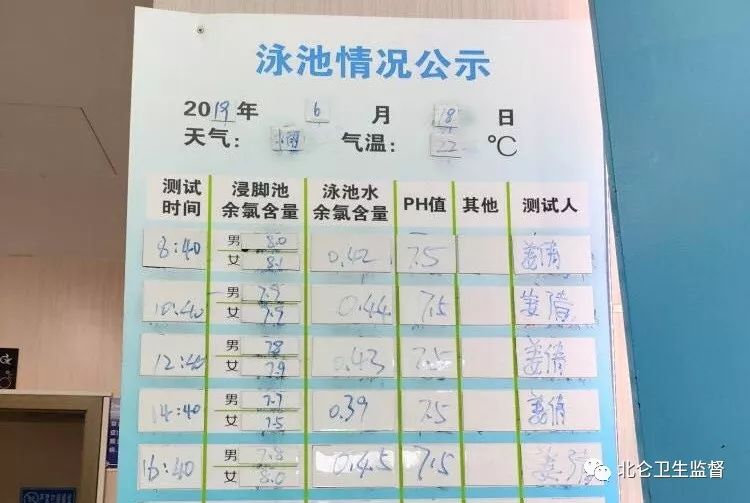 泳池情况公示
2019年 6 月 18 日
天气: 气温: 22 ℃
测试时间 浸脚池余氯含量 泳池水余氯含量 PH值 其他 测试人
8:40 男 8.0 女 8.1 0.42 7.5
10:40 男 7.9 女 7.9 0.44 7.5
12:40 男 7.8 女 7.9 0.43 7.5
14:40 男 7.7 女 7.5 0.39 7.5
16:40 男 7.8 女 8.0 0.45 7.5
北仑卫生监督